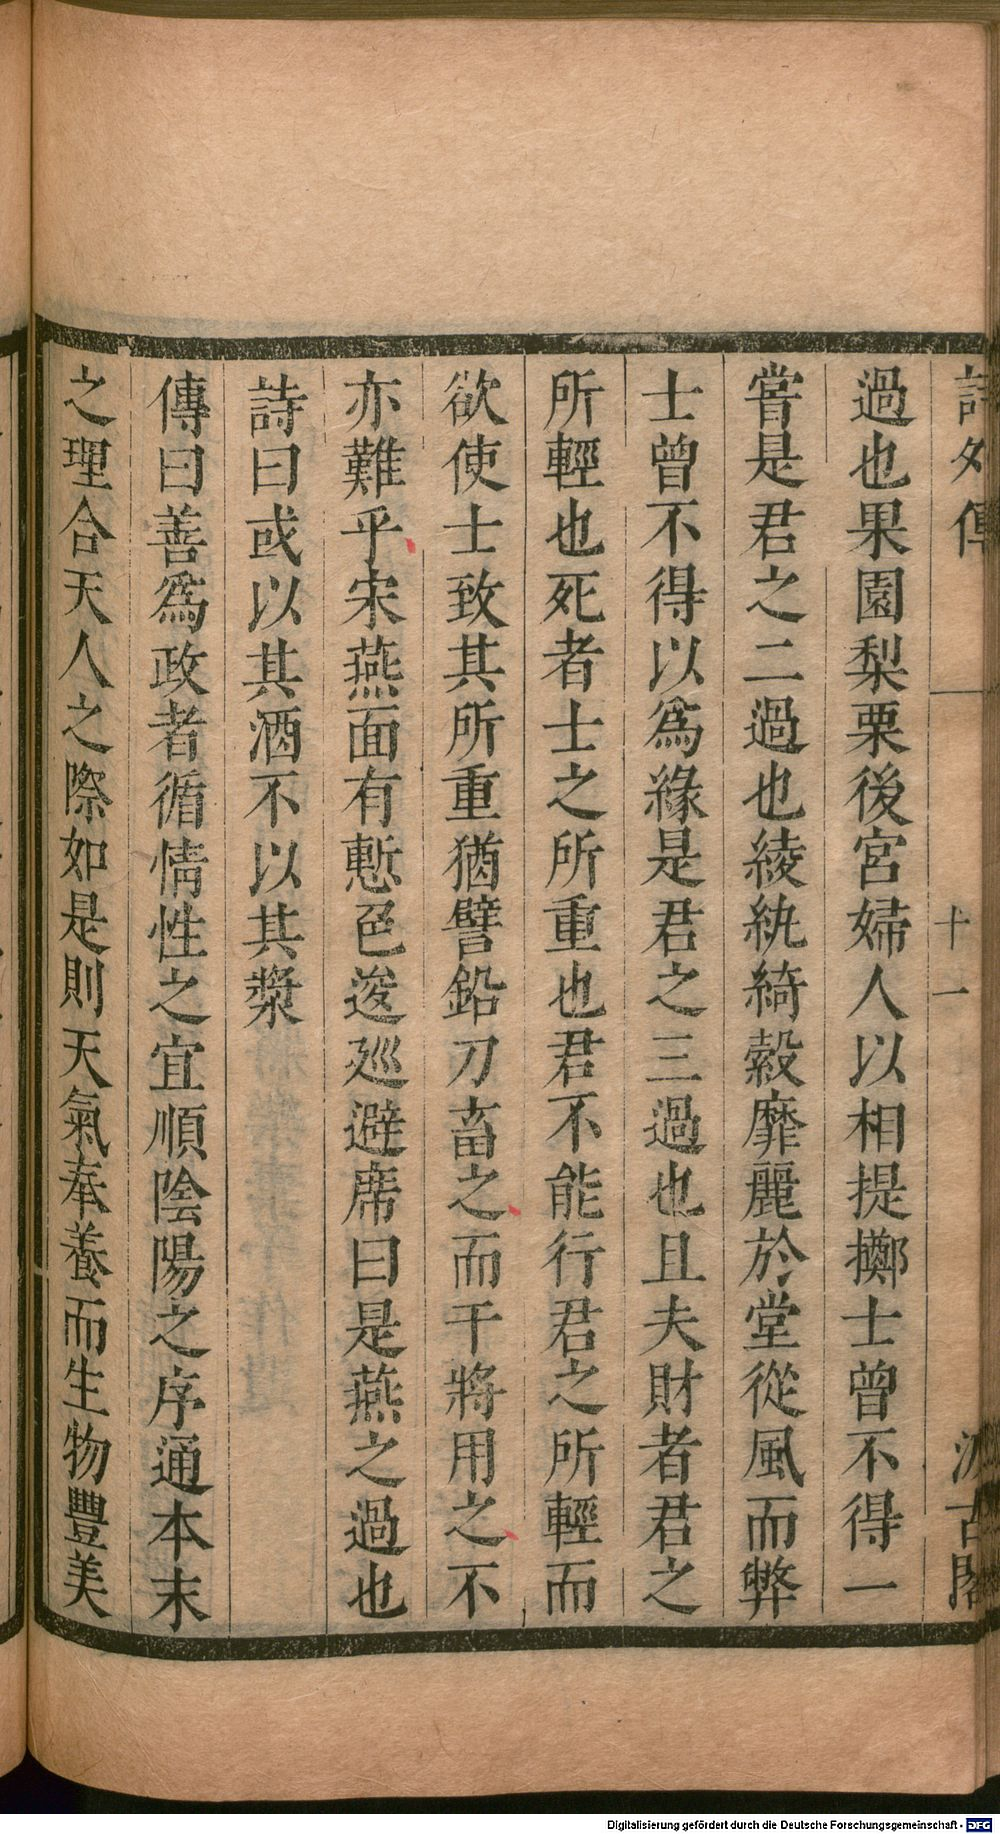 詩外傳
十一
汲古閣
過也果園梨栗後宮婦人以相提擲士曾不得一
嘗是君之二過也綾紈綺縠靡麗於堂從風而弊
士曾不得以爲緣是君之三過也且夫財者君之
所輕也死者士之所重也君不能行君之所輕而
欲使士致其所重猶譬鉛刀畜之而干將用之不
亦難乎宋燕面有慙色逡廵避席曰是燕之過也
詩曰或以其酒不以其漿
傳曰善爲政者循情性之宜順陰陽之序通本末
之理合天人之際如是則天氣奉養而生物豐美
Digitalisierung gefördert durch die Deutsche Forschungsgemeinschaft - DFG